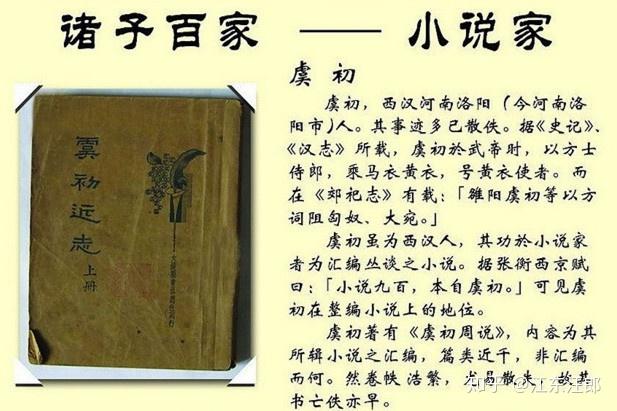 诸子百家 —— 小说家
虞初
虞初，西汉河南洛阳（今河南洛
阳市）人。其事迹多已散佚。据《史记》、
《汉志》所载，虞初於武帝时，以方士
侍郎，乘马衣黄衣，号黄衣使者。而
在《郊祀志》有载：「雒阳虞初等以方
词阻匈奴、大宛。」
虞初虽为西汉人，其功於小说家
者为汇编丛谈之小说。据张衡西京赋
曰：「小说九百，本自虞初。」可见虞
初在整编小说上的地位。
虞初著有《虞初周说》，内容为其
所辑小说之汇编，篇类近千，非汇编
而何。然卷帙浩繁，尤易散失，故其
书亡佚亦早。
虞初近志
上册
知乎 @江东汪郎